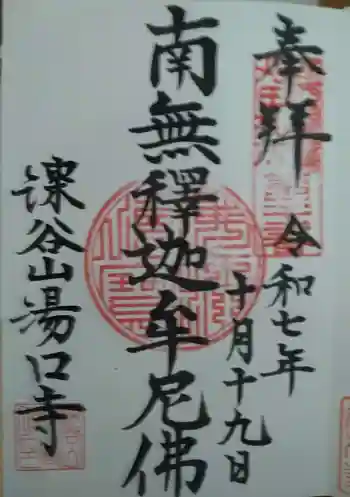 奉拜
令和七年
十月十九日
南無釋迦牟尼佛
谷山湯口寺